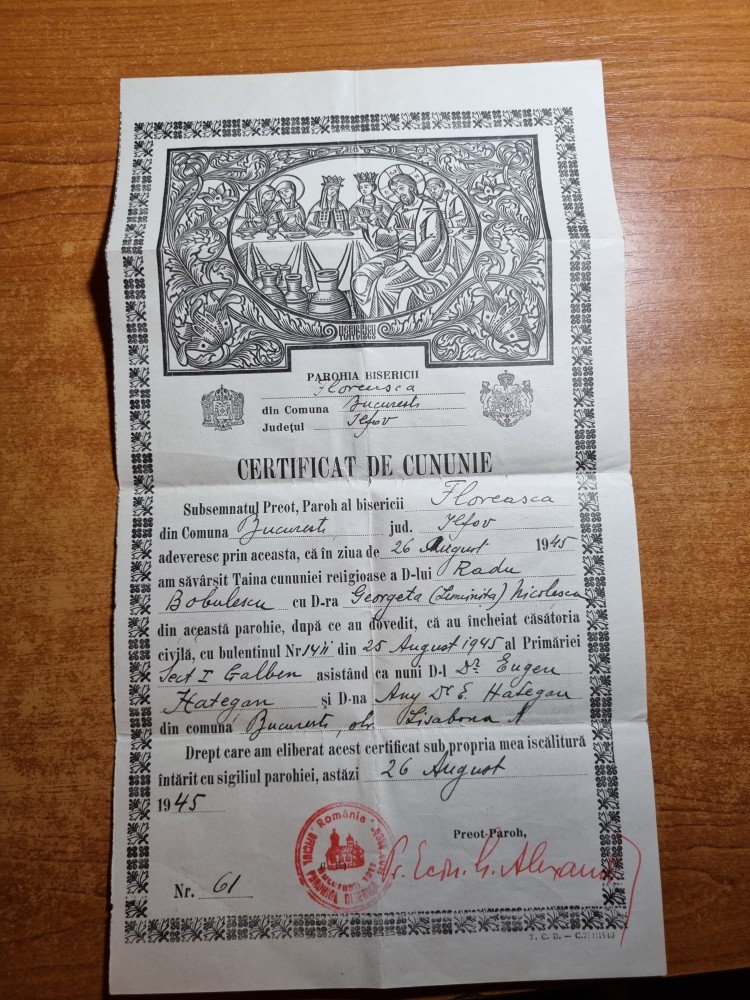 PAROHIA BISERICII
Floreasca
din Comuna Bucuresti
Județul Ilfov
CERTIFICAT DE CUNUNIE
Subsemnatul Preot, Paroh al bisericii Floreasca
din Comuna Bucuresti jud. Ilfov
adeveresc prin aceasta, că în ziua de 26 August 1945
am săvârșit Taina cununiei religioase a D-lui Radu
Bobulescu cu D-ra Georgeta (Luminița) Nicolescu
din această parohie, după ce au dovedit, că au încheiat căsătoria
civilă, cu buletinul Nr. din 25 August 1945 al Primăriei
Sect I Galben asistând ca nuni D-l Dr. Eugen
Hategan și D-na Any Dr. E. Hategan
din comuna Bucuresti, Lisabona
Drept care am eliberat acest certificat sub propria mea iscălitură
întărit cu sigiliul parohiei, astăzi 26 August
1945
România
Preot-Paroh,
Pr. Econ. G.
Nr. 61
T. C. D. — C.